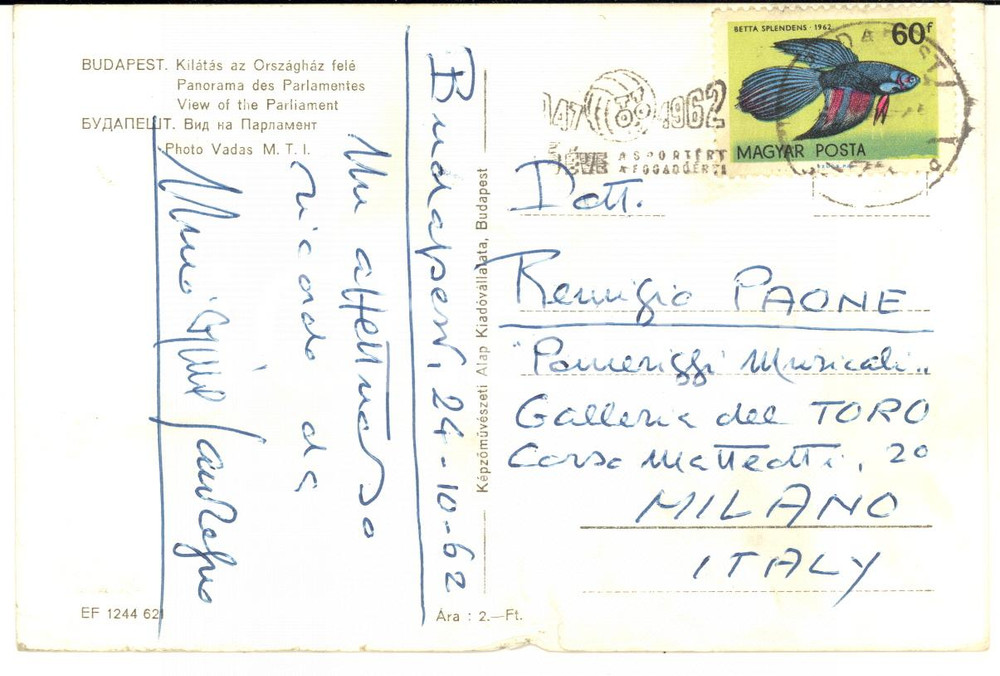 BUDAPEST. Kilátás az Országház felé
Panorama des Parlamentes
View of the Parliament
БУДАПЕШТ. Вид на Парламент
Photo Vadas M. T. I.
Budapest, 24-10-62
Un affettuoso
ricordo da
EF 1244 621
Ára : 2.—Ft.
Képzőművészeti Alap Kiadóvállalata, Budapest
BETTA SPLENDENS · 1962
60f
MAGYAR POSTA
1947 1962
15 ÉVE A SPORTÉRT
A FOGADÓÉRT
BUDAPEST
Dott.
Remigio PAONE
"Pomeriggi Musicali"
Galleria del TORO
Corso Matteotti, 20
MILANO
ITALY